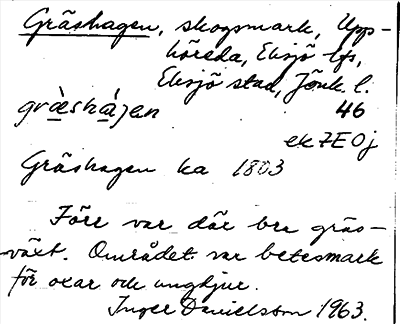 Gräshagen, skogsmark, Upp-
höreda, Eksjö lfs,
Eksjö stad, Jönk. l.
græ̀shá̱gen 46
ek 7E 0j
Gräshagen ka 1803
Förr var där bra gräs-
växt. Området var betesmark
för oxar och ungdjur.
Inger Danielsson 1963.